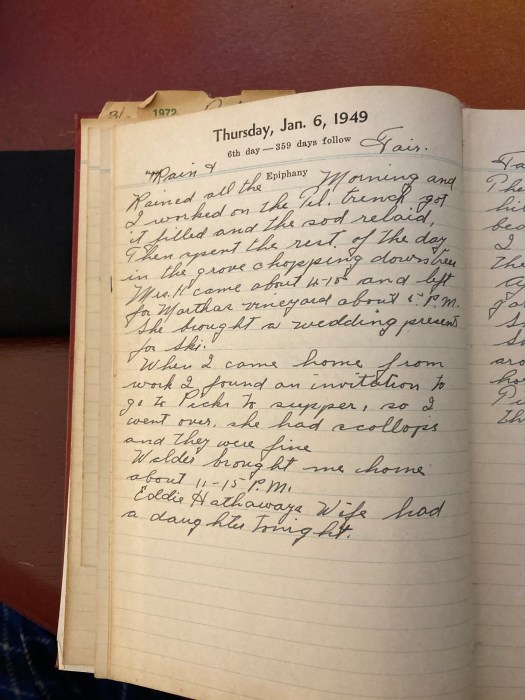 1972
Thursday, Jan. 6, 1949
6th day—359 days follow
Rain & Fair.
Epiphany
Rained all the Morning and
I worked on the Tel. trench, got
it filled and the sod relaid,
Then spent the rest of the day
in the grove chopping down trees
Mrs. H came about 4-10 and left
for Marthas vineyard about 5- P.M.
She brought a wedding present
for Ski.
When I came home from
work I found an invitation to
go to Picks to supper, so I
went over, she had scollops
and they were fine
Walder brought me home
about 11-15 P.M.
Eddie Hathaways Wife had
a daughter tonight.